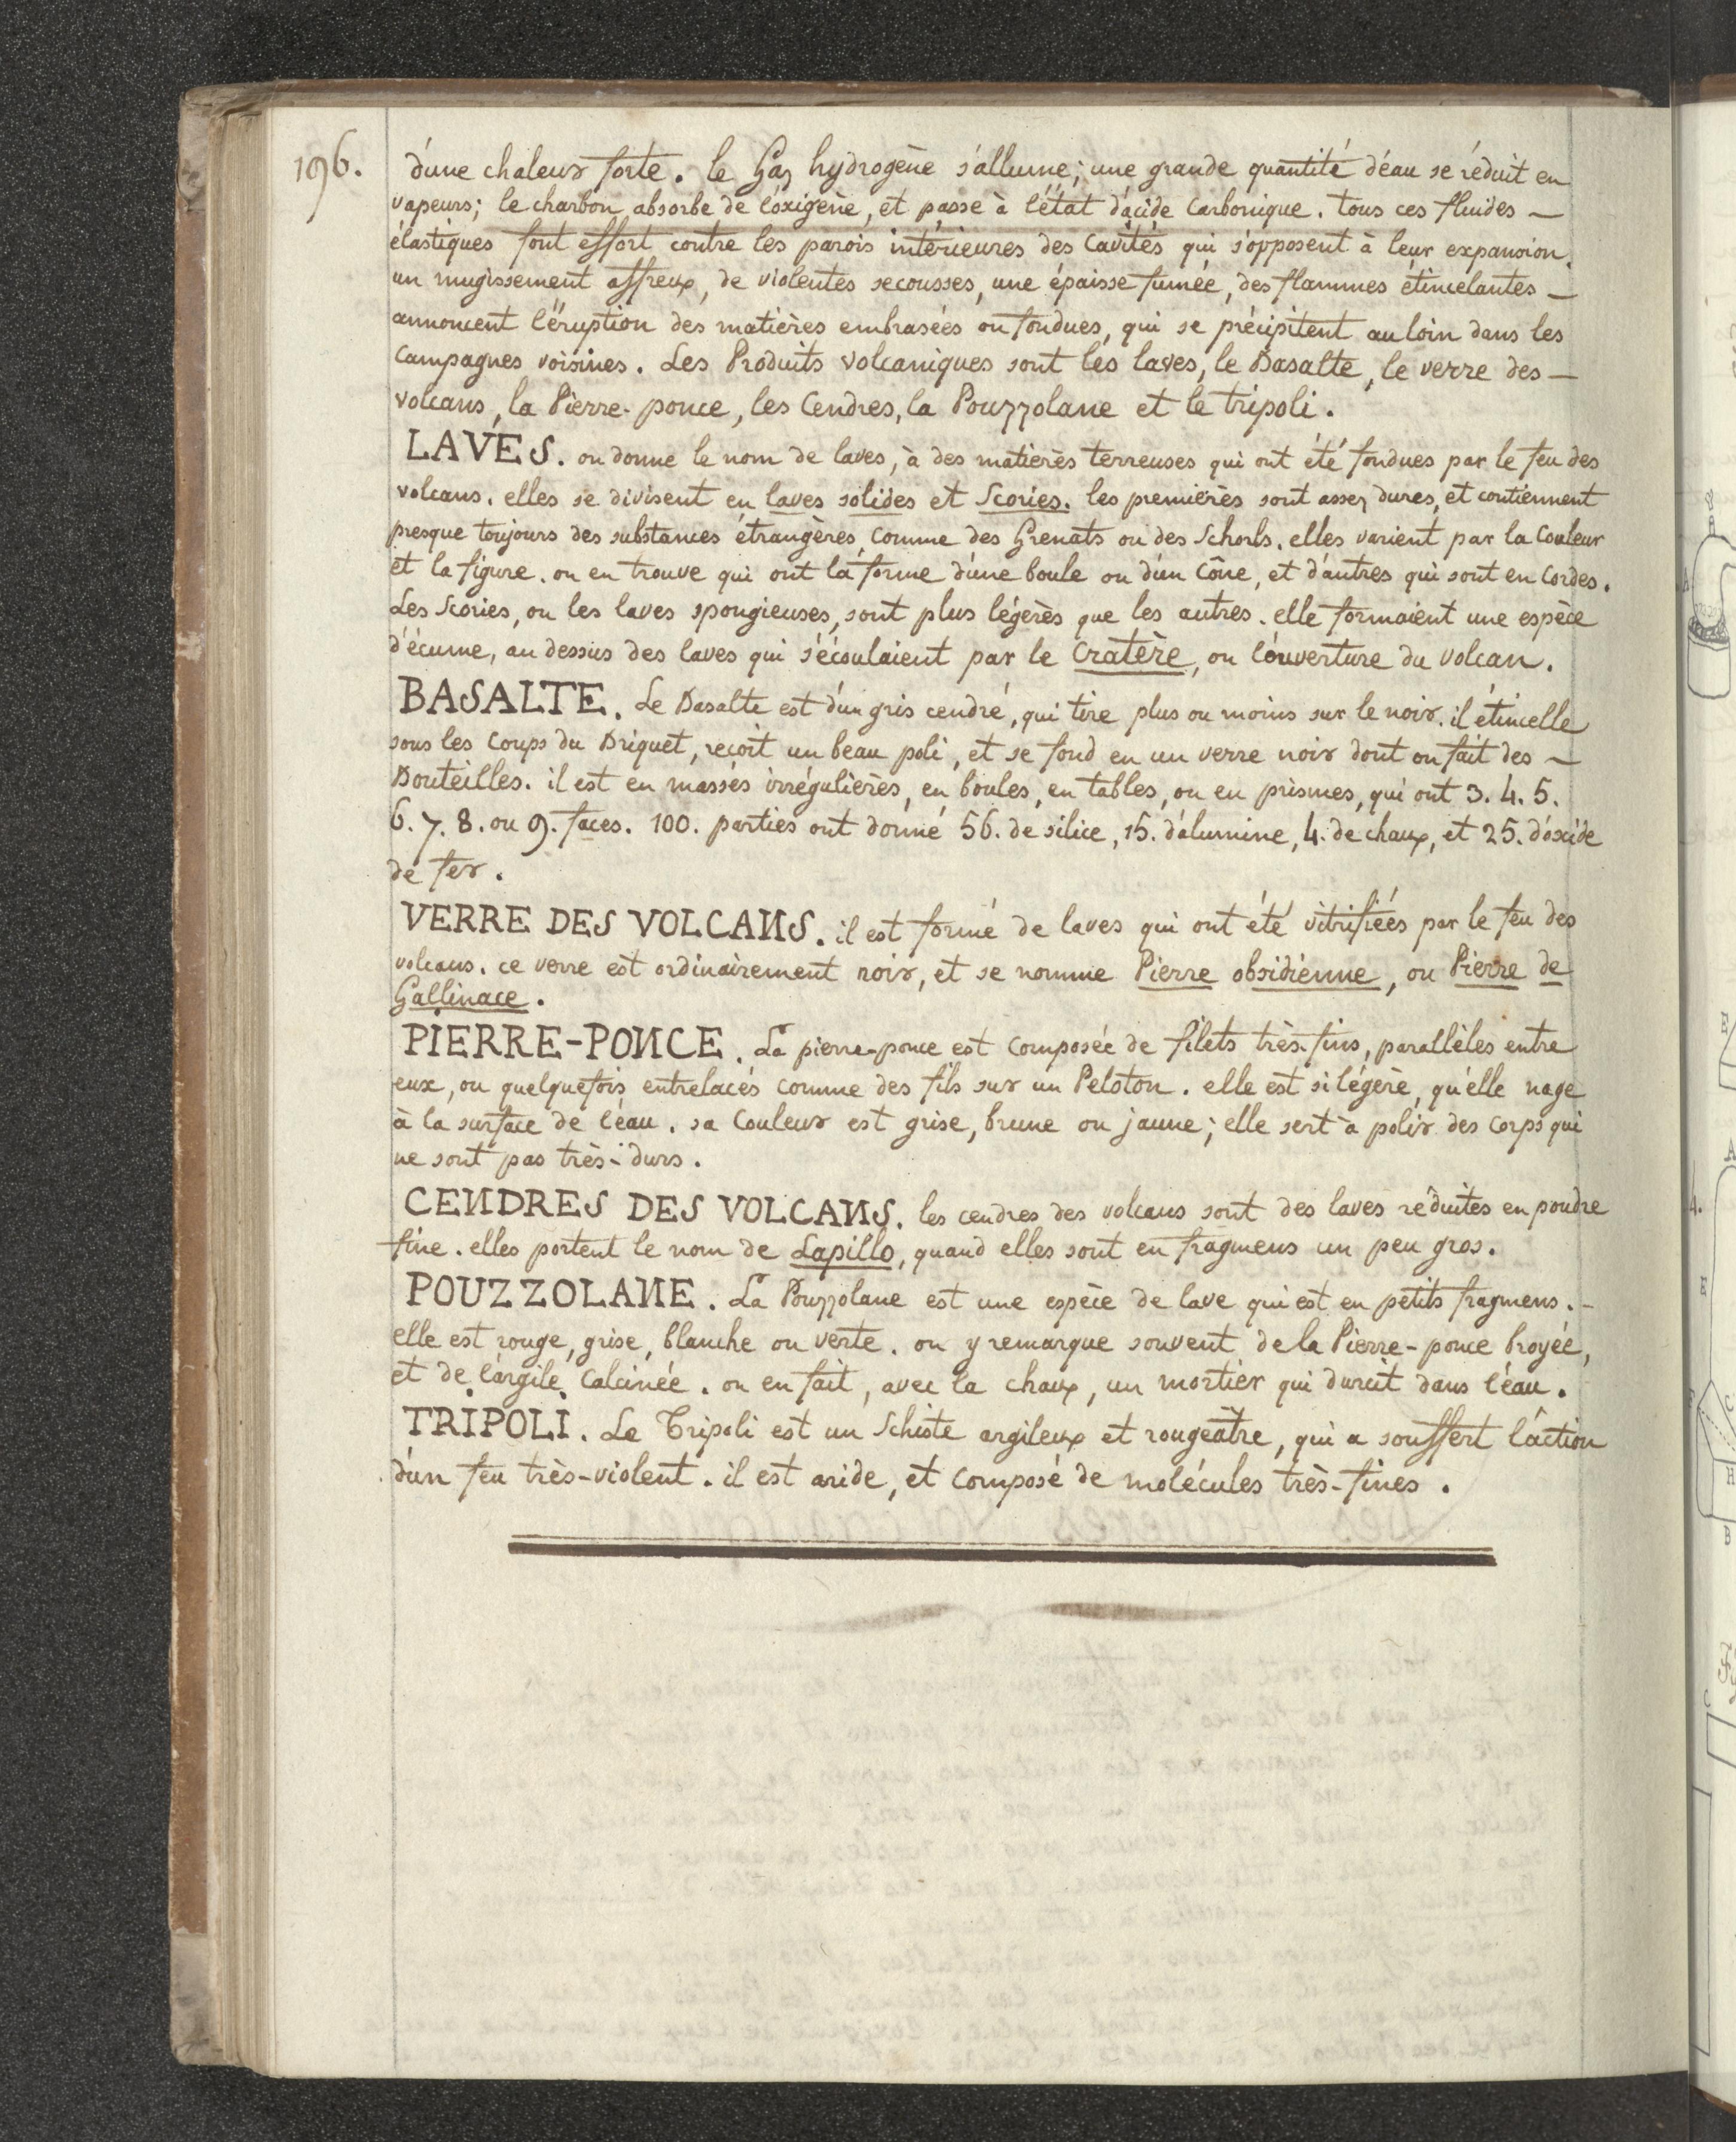 196.
d'une chaleur forte. le Gaz hydrogène s'allume; une grande quantité d'eau se réduit en
vapeurs; le charbon absorbe de l'oxigène, et passe à l'état d'acide Carbonique. tous ces fluides —
élastiques font effort contre les parois intérieures des Cavités qui s'opposent à leur expansion.
un mugissement affreux, de violentes secousses, une épaisse fumée, des flammes étincelantes —
annoncent l'éruption des matières embrasées ou fondues, qui se précipitent au loin dans les
Campagnes voisines. Les Produits volcaniques sont les laves, le Basalte, le verre des —
volcans, la Pierre-ponce, les Cendres, la Pouzzolane et le tripoli.
LAVES. on donne le nom de laves, à des matières terreuses qui ont été fondues par le feu des
volcans. elles se divisent en laves solides et Scories. les premières sont assez dures, et contiennent
presque toujours des substances étrangères, Comme des Grenats ou des Schorls. elles varient par la Couleur
et la figure. on en trouve qui ont la forme d'une boule ou d'un Cône, et d'autres qui sont en Cordes.
Les Scories, ou les laves spongieuses, sont plus légères que les autres. elle formaient une espèce
d'écume, au dessus des laves qui s'écoulaient par le Cratère, ou l'ouverture du volcan.
BASALTE. Le Basalte est d'un gris cendré, qui tire plus ou moins sur le noir. il étincelle
sous les Coups du Briquet, reçoit un beau poli, et se fond en un verre noir dont on fait des —
Bouteilles. il est en masses irrégulières, en boules, en tables, ou en prismes, qui ont 3. 4. 5.
6. 7. 8. ou 9. faces. 100. parties ont donné 56. de silice, 15. d'alumine, 4. de chaux, et 25. d'oxide
de fer.
VERRE DES VOLCANS. il est formé de laves qui ont été vitrifiées par le feu des
volcans. ce verre est ordinairement noir, et se nomme Pierre obsidienne, ou Pierre de
Gallinace.
PIERRE-PONCE. La pierre-ponce est Composée de filets très-fins, parallèles entre
eux, ou quelquefois entrelacés comme des fils sur un Peloton. elle est si légère, qu'elle nage
à la surface de l'eau. sa Couleur est grise, brune ou jaune; elle sert à polir des Corps qui
ne sont pas très-durs.
CENDRES DES VOLCANS. les cendres des volcans sont des laves réduites en poudre
fine. elles portent le nom de Lapillo, quand elles sont en fragmens un peu gros.
POUZZOLANE. La Pouzzolane est une espèce de lave qui est en petits fragmens. -
elle est rouge, grise, blanche ou verte. on y remarque souvent de la Pierre-ponce broyée,
et de l'argile Calcinée. on en fait, avec la chaux, un mortier qui durcit dans l'eau.
TRIPOLI. Le Tripoli est un Schiste argileux et rougeâtre, qui a souffert l'action
d'un feu très-violent. il est aride, et Composé de molécules très-fines.